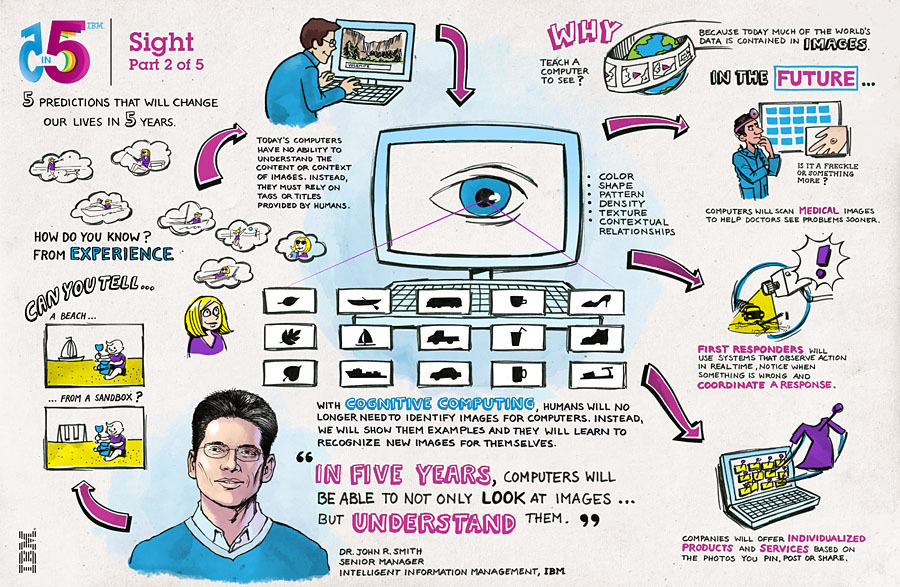 5 IN 5
IBM
Sight
Part 2 of 5
5 PREDICTIONS THAT WILL CHANGE
OUR LIVES IN 5 YEARS.
TODAY'S COMPUTERS
HAVE NO ABILITY TO
UNDERSTAND THE
CONTENT OR CONTEXT
OF IMAGES. INSTEAD,
THEY MUST RELY ON
TAGS OR TITLES
PROVIDED BY HUMANS.
WHY
TEACH A
COMPUTER
TO SEE?
BECAUSE TODAY MUCH OF THE WORLD'S
DATA IS CONTAINED IN IMAGES.
IN THE FUTURE ...
IS IT A FRECKLE
OR SOMETHING
MORE?
COMPUTERS WILL SCAN MEDICAL IMAGES
TO HELP DOCTORS SEE PROBLEMS SOONER.
• COLOR
• SHAPE
• PATTERN
• DENSITY
• TEXTURE
• CONTEXTUAL
RELATIONSHIPS
HOW DO YOU KNOW?
FROM EXPERIENCE
CAN YOU TELL...
A BEACH...
... FROM A SANDBOX?
!
FIRST RESPONDERS WILL
USE SYSTEMS THAT OBSERVE ACTION
IN REALTIME, NOTICE WHEN
SOMETHING IS WRONG AND
COORDINATE A RESPONSE.
WITH COGNITIVE COMPUTING, HUMANS WILL NO
LONGER NEED TO IDENTIFY IMAGES FOR COMPUTERS. INSTEAD,
WE WILL SHOW THEM EXAMPLES AND THEY WILL LEARN TO
RECOGNIZE NEW IMAGES FOR THEMSELVES.
“IN FIVE YEARS, COMPUTERS WILL
BE ABLE TO NOT ONLY LOOK AT IMAGES ...
BUT UNDERSTAND THEM.”
DR. JOHN R. SMITH
SENIOR MANAGER
INTELLIGENT INFORMATION MANAGEMENT, IBM
COMPANIES WILL OFFER INDIVIDUALIZED
PRODUCTS AND SERVICES BASED ON
THE PHOTOS YOU PIN, POST OR SHARE.
IBM